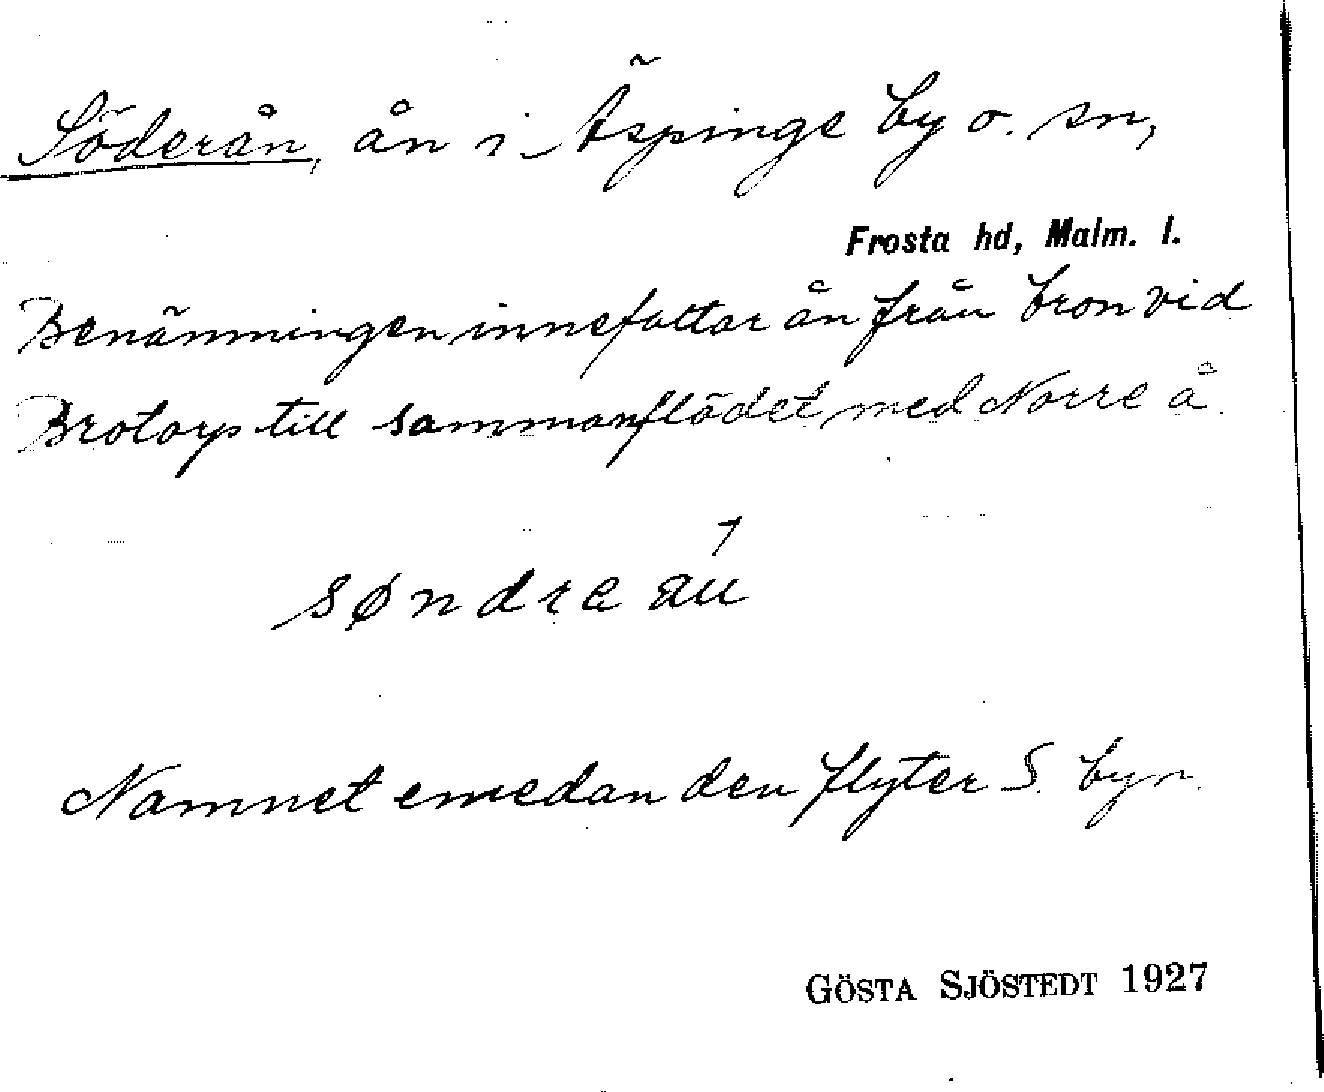 Söderån, ån i Äspinge by o. sn,
Frosta hd, Malm. l.
Benämningen innefattar ån från bron vid
Brotorp till sammanflödet med Norre å.
søndre au
Namnet emedan den flyter S. byn.
GÖSTA SJÖSTEDT 1927